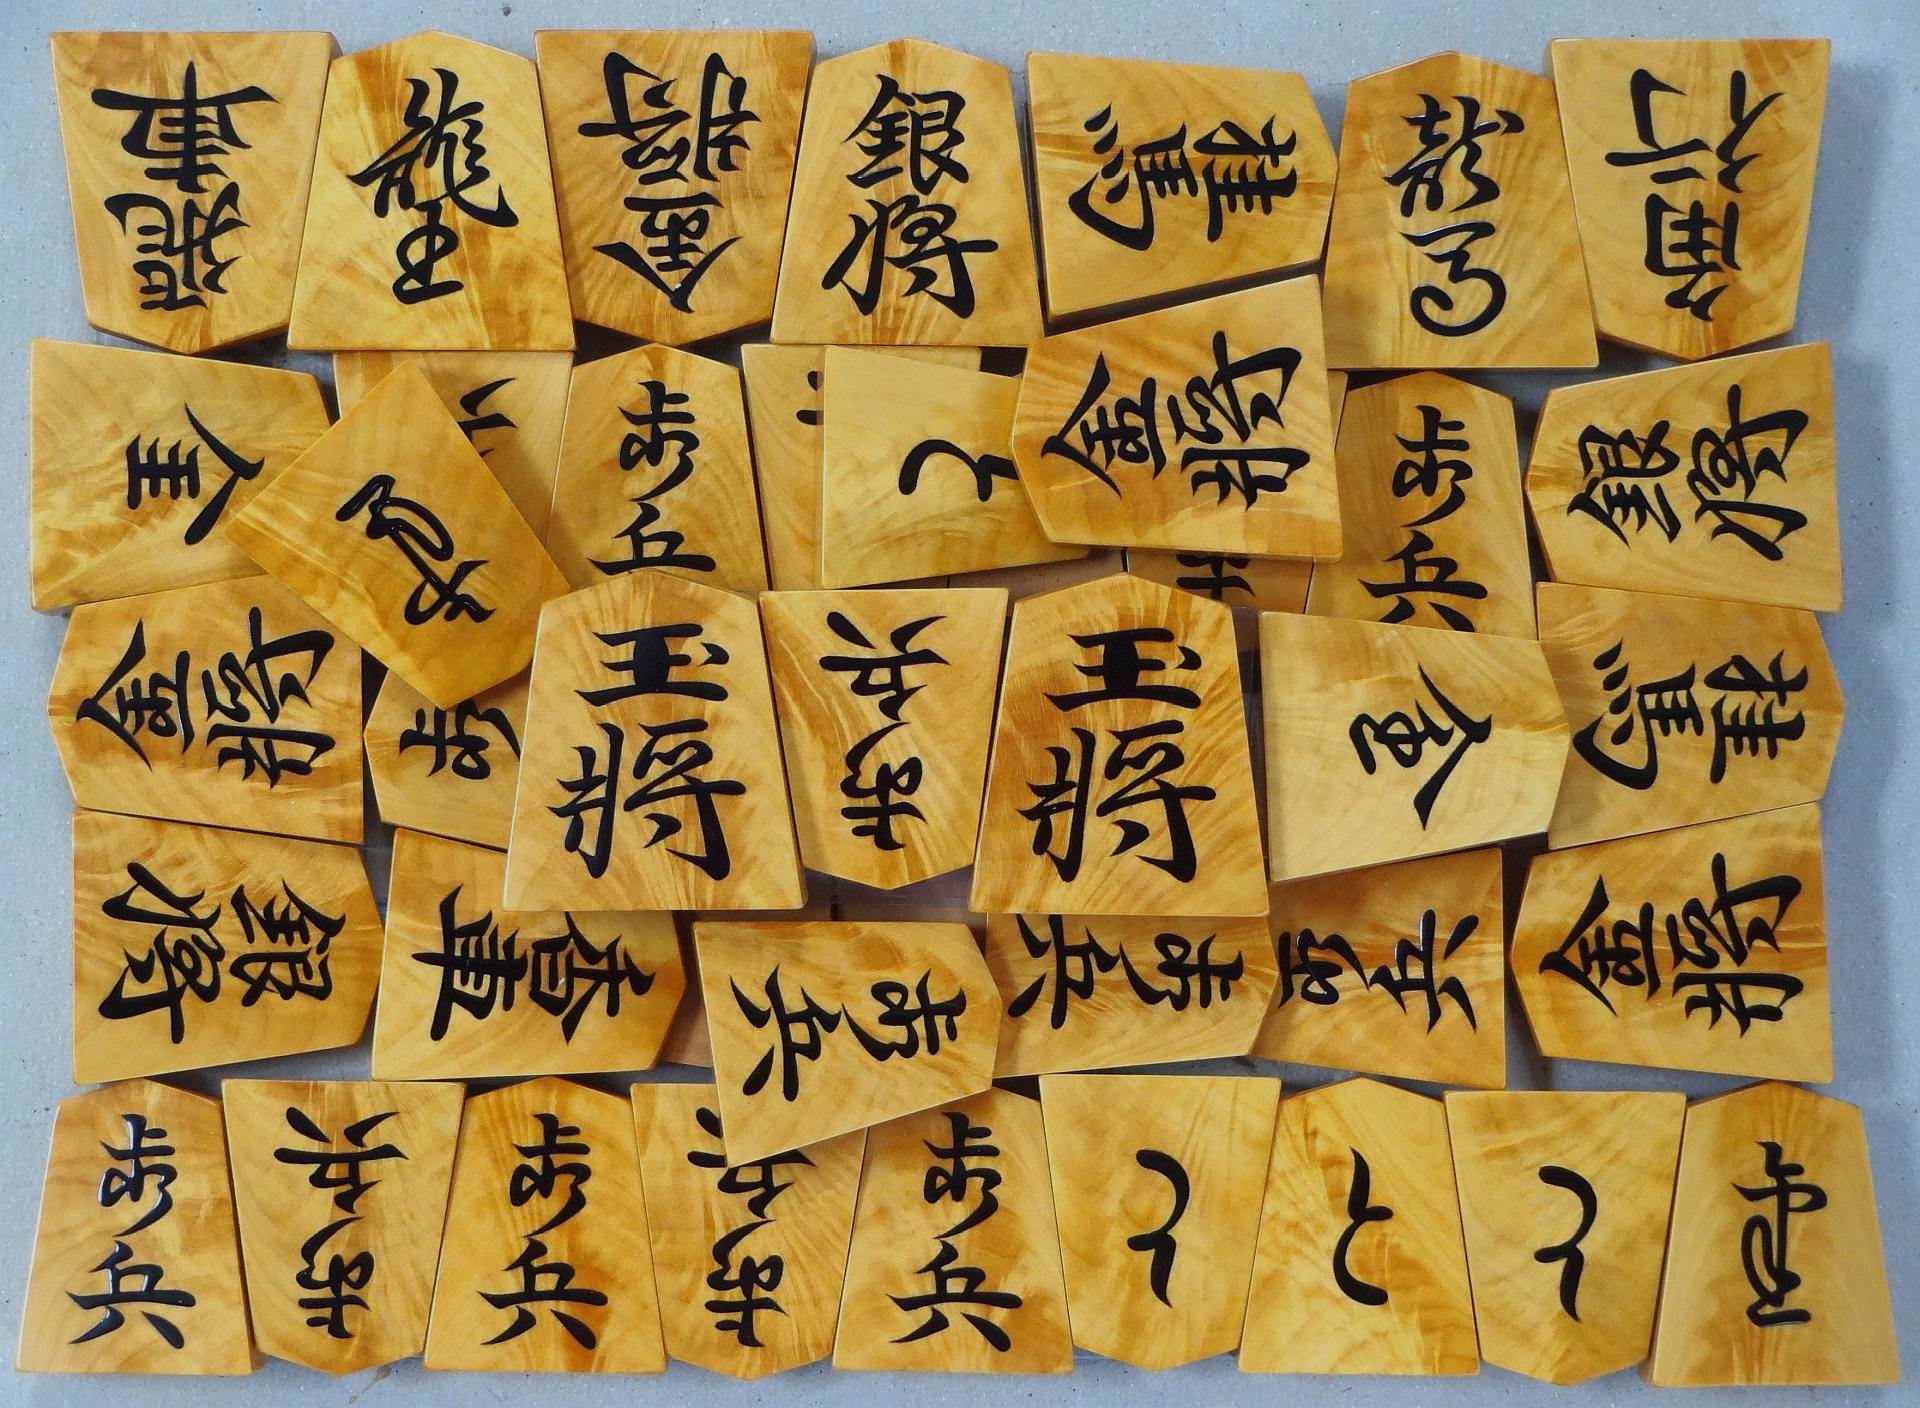 飛車
龍王
金将
銀将
桂馬
龍馬
香車
全
歩兵
と
金将
歩兵
銀将
金将
玉将
歩兵
玉将
金
桂馬
銀将
香車
歩兵
歩兵
歩兵
金将
歩兵
歩兵
歩兵
歩兵
歩兵
と
と
と